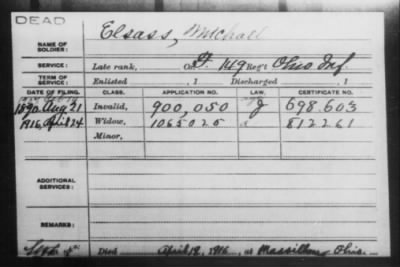 DEAD
NAME OF SOLDIER: Elsass, Michael
SERVICE: Late rank, Co. F. 149 Reg't Ohio Inf.
TERM OF SERVICE: Enlisted , 1 Discharged , 1
DATE OF FILING. CLASS. APPLICATION NO. LAW. CERTIFICATE NO.
1890 Aug 21 Invalid, 900,050 J 698.603
1916, April 24 Widow, 1065025 812261
Minor,
ADDITIONAL SERVICES:
REMARKS:
Died April 19, 1916, at Massillon Ohio